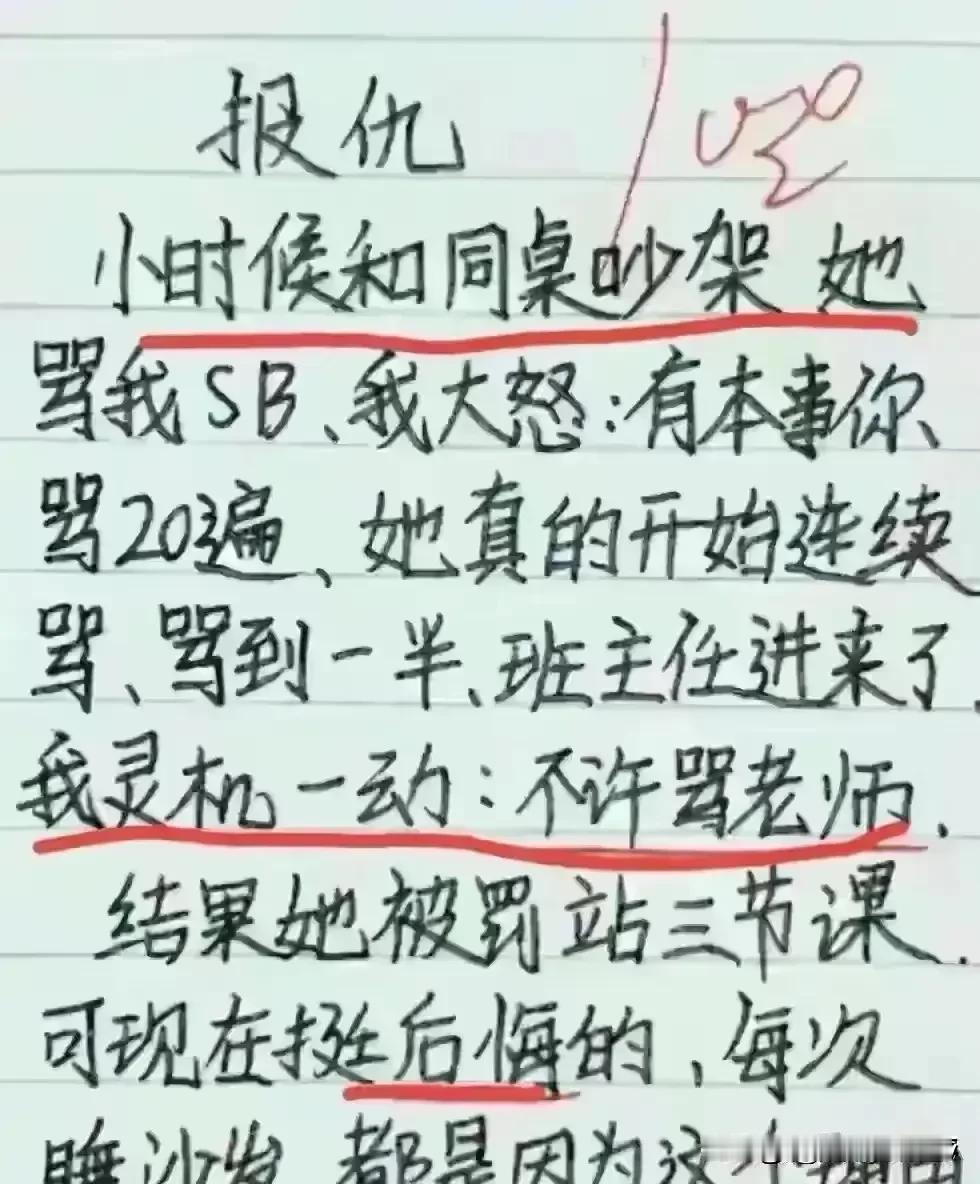 报仇
小时候和同桌吵架 她
骂我SB、我大怒:有本事你、
骂20遍、她真的开始连续
骂、骂到一半、班主任进来了.
我灵机一动:不许骂老师.
结果她被罚站三节课.
可现在挺后悔的,每次
睡沙发 都是因为这个理由